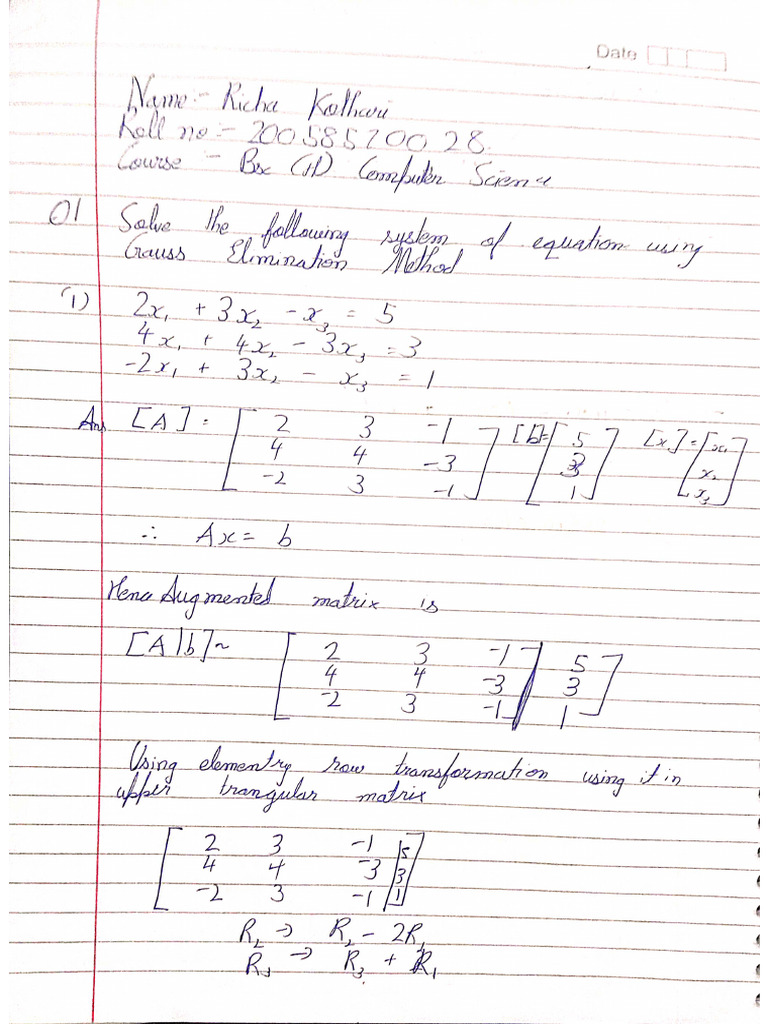 Date
Name:- Richa Kothari
Roll no:- 20058570028
Course - Bsc (H) Computer Science
Q1 Solve the following system of equation using
Gauss Elimination Method
(1) 2x₁ + 3x₂ - x₃ = 5
4x₁ + 4x₂ - 3x₃ = 3
-2x₁ + 3x₂ - x₃ = 1
Ans [A] = [ 2 3 -1 ] [b]= [ 5 ] [x] = [ x₁ ]
[ 4 4 -3 ] [ 3 ] [ x₂ ]
[ -2 3 -1 ] [ 1 ] [ x₃ ]
∴ Ax = b
Hence Augmented matrix is
[A|b] ~ [ 2 3 -1 | 5 ]
[ 4 4 -3 | 3 ]
[ -2 3 -1 | 1 ]
Using elementry row transformation using it in
upper trangular matrix
[ 2 3 -1 | 5 ]
[ 4 4 -3 | 3 ]
[ -2 3 -1 | 1 ]
R₂ → R₂ - 2R₁
R₃ → R₃ + R₁